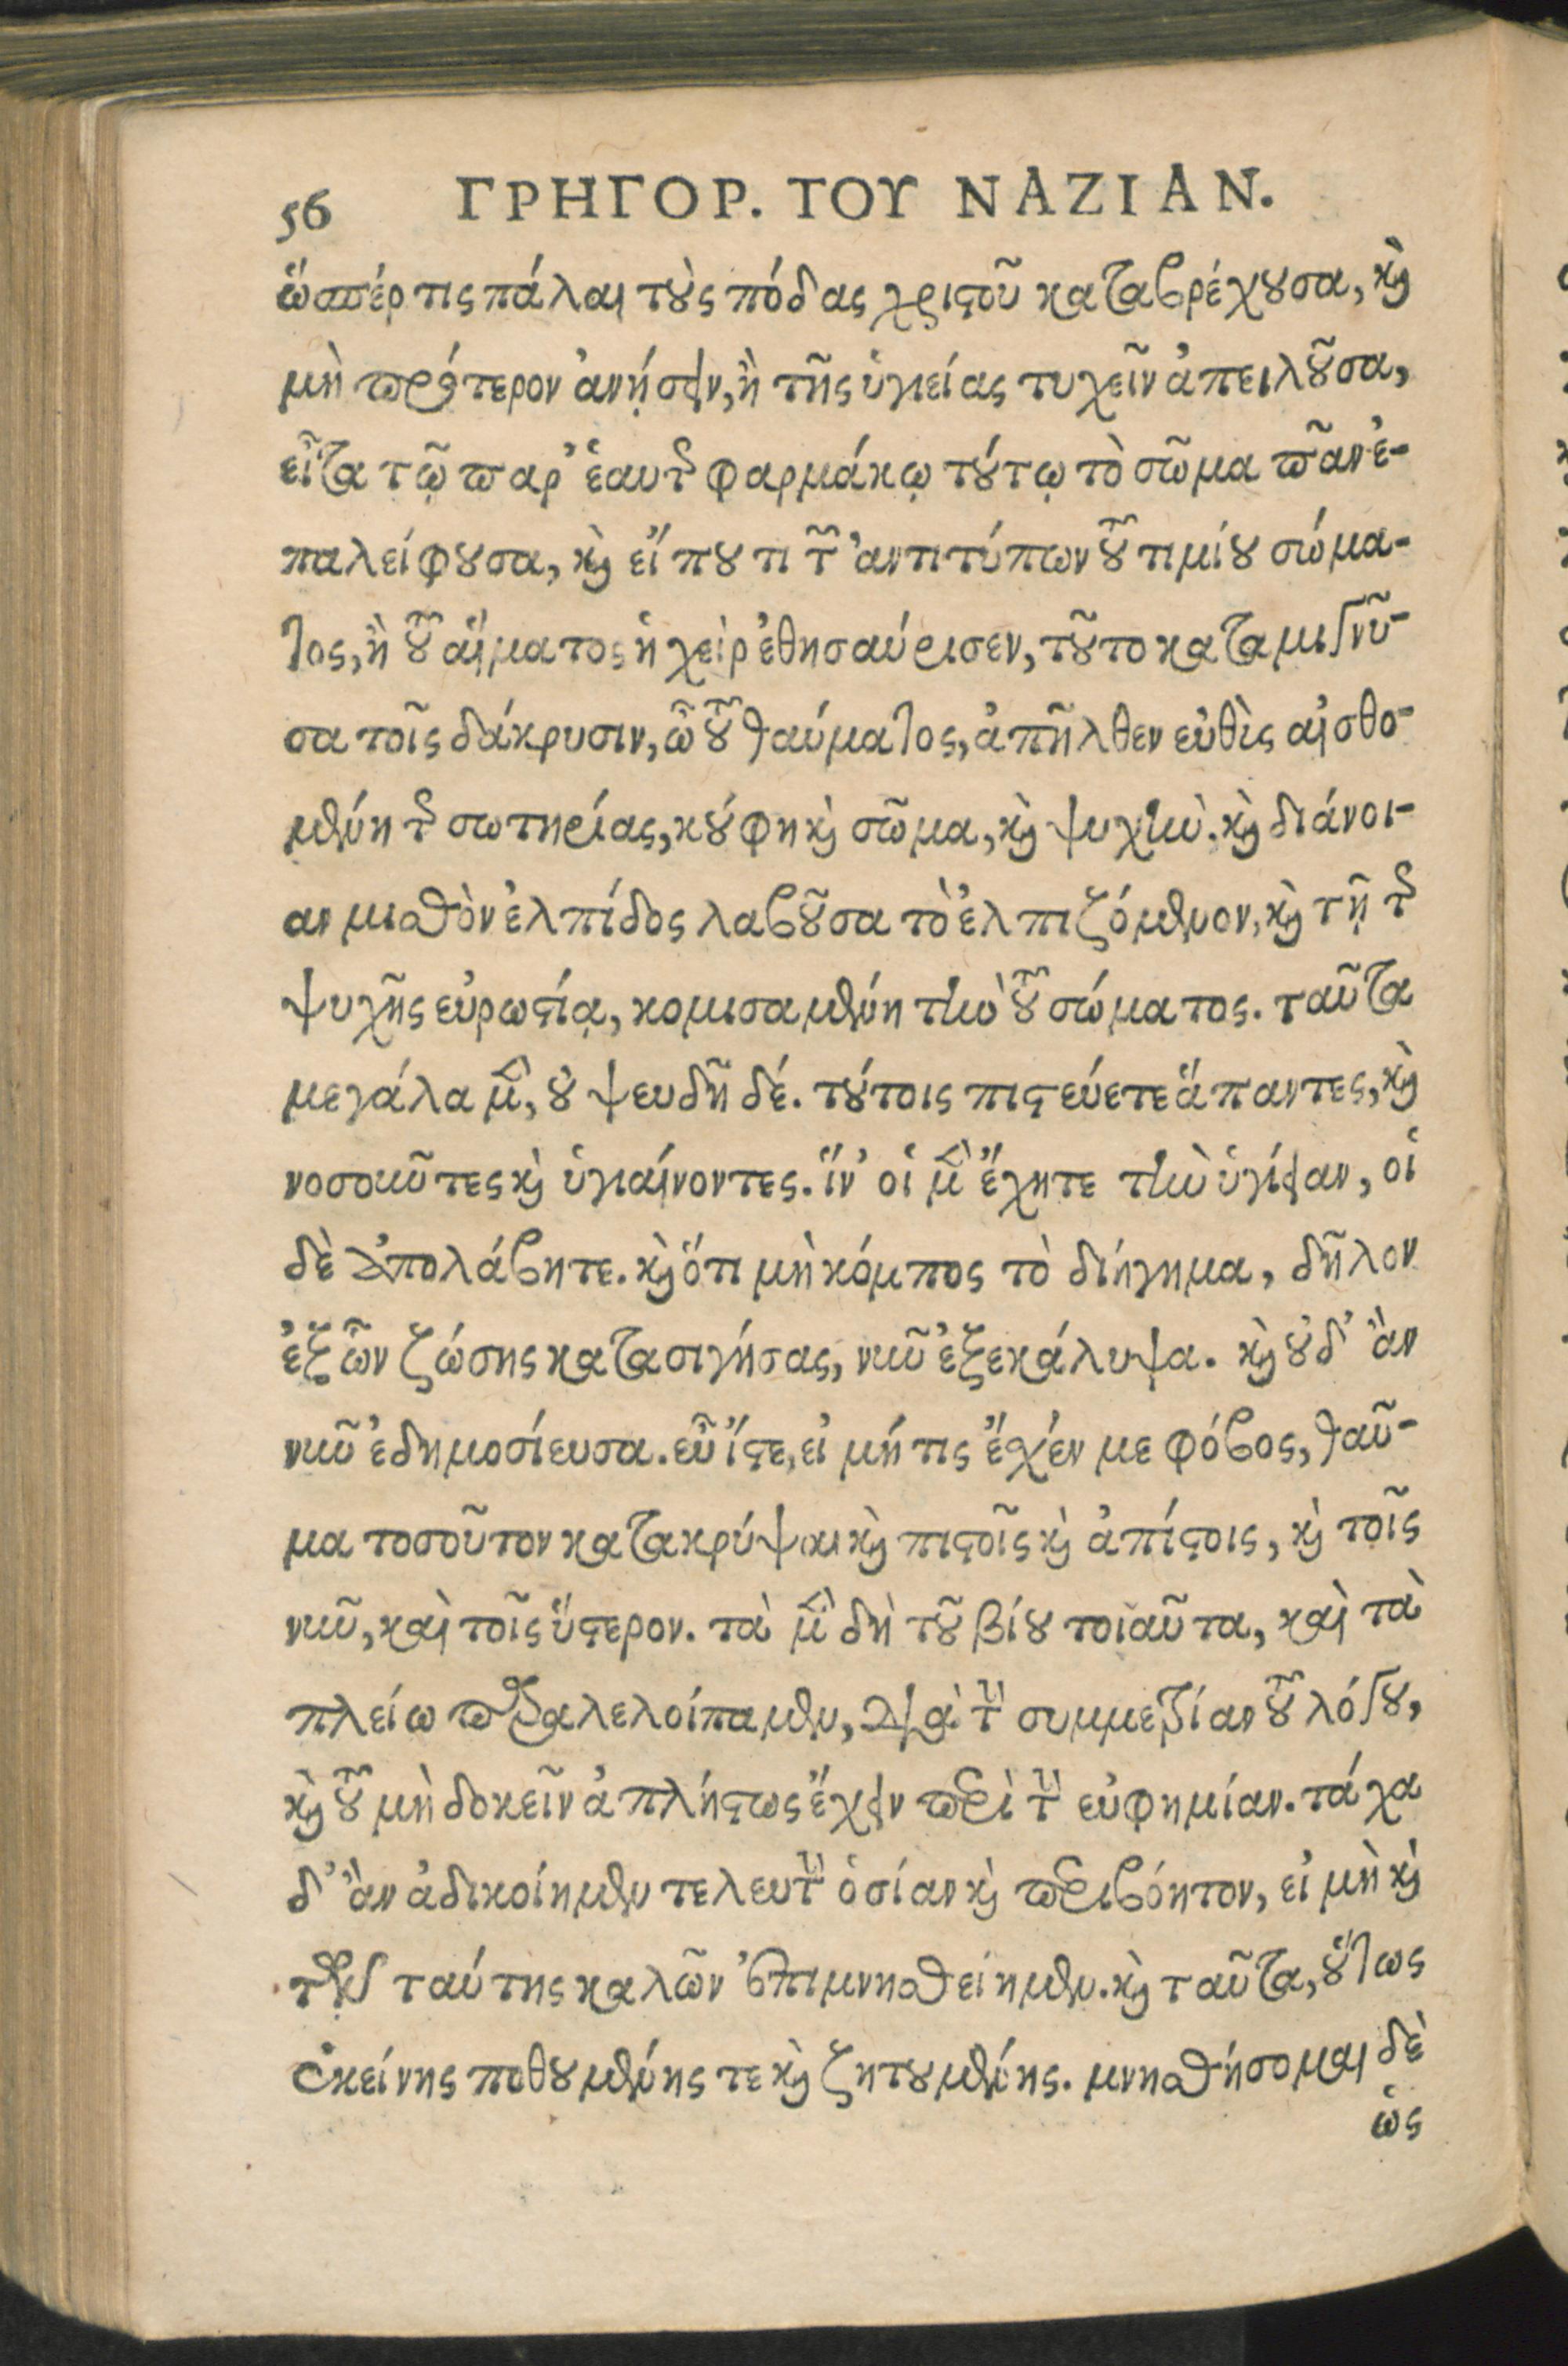 56 ΓΡΗΓΟΡ. ΤΟΥ ΝΑΖΙΑΝ.
ὥσπέρ τις πάλαι τοὺς πόδας χριστοῦ καταβρέχουσα, καὶ
μὴ πρότερον ἀνήσειν, ἢ τῆς ὑγιείας τυχεῖν ἀπειλοῦσα,
εἶτα τῷ παρ' ἑαυτῆς φαρμάκῳ τούτῳ τὸ σῶμα πᾶν ἐ-
παλείφουσα, καὶ εἴ που τι τῶν ἀντιτύπων τοῦ τιμίου σώμα-
τος, ἢ τοῦ αἵματος ἡ χεὶρ ἐθησαύρισεν, τοῦτο καταμιγνῦ-
σα τοῖς δάκρυσιν, ὢ τοῦ θαύματος, ἀπῆλθεν εὐθὺς αἰσθο-
μένη τῆς σωτηρίας, κούφη καὶ σῶμα, καὶ ψυχὴν, καὶ διάνοι-
αν μισθὸν ἐλπίδος λαβοῦσα τὸ ἐλπιζόμενον, καὶ τῇ τῆς
ψυχῆς εὐρωστίᾳ, κομισαμένη τὴν τοῦ σώματος. ταῦτα
μεγάλα μὲν, οὐ ψευδῆ δέ. τούτοις πιστεύετε ἅπαντες, καὶ
νοσοῦντες καὶ ὑγιαίνοντες. ἵν' οἱ μὲν ἔχητε τὴν ὑγίειαν, οἱ
δὲ ἀπολάβητε. καὶ ὅτι μὴ κόμπος τὸ διήγημα, δῆλον
ἐξ ὧν ζώσης κατασιγήσας, νῦν ἐξεκάλυψα. καὶ οὐδ' ἂν
νῦν ἐδημοσίευσα. εὖ ἴστε, εἰ μή τις ἔσχέν με φόβος, θαῦ-
μα τοσοῦτον κατακρύψαι καὶ πιστοῖς καὶ ἀπίστοις, καὶ τοῖς
νῦν, καὶ τοῖς ὕστερον. τὰ μὲν δὴ τοῦ βίου τοιαῦτα, καὶ τὰ
πλείω παραλελοίπαμεν, διὰ τὴν συμμετρίαν τοῦ λόγου,
καὶ τοῦ μὴ δοκεῖν ἀπλήστως ἔχειν περὶ τὴν εὐφημίαν. τάχα
δ' ἂν ἀδικοίημεν τελευτὴν ὁσίαν καὶ περιβόητον, εἰ μὴ καὶ
τῶν ταύτης καλῶν ἐπιμνησθείημεν. καὶ ταῦτα, οὕτως
ἐκείνης ποθουμένης τε καὶ ζητουμένης. μνησθήσομαι δὲ
ὡς